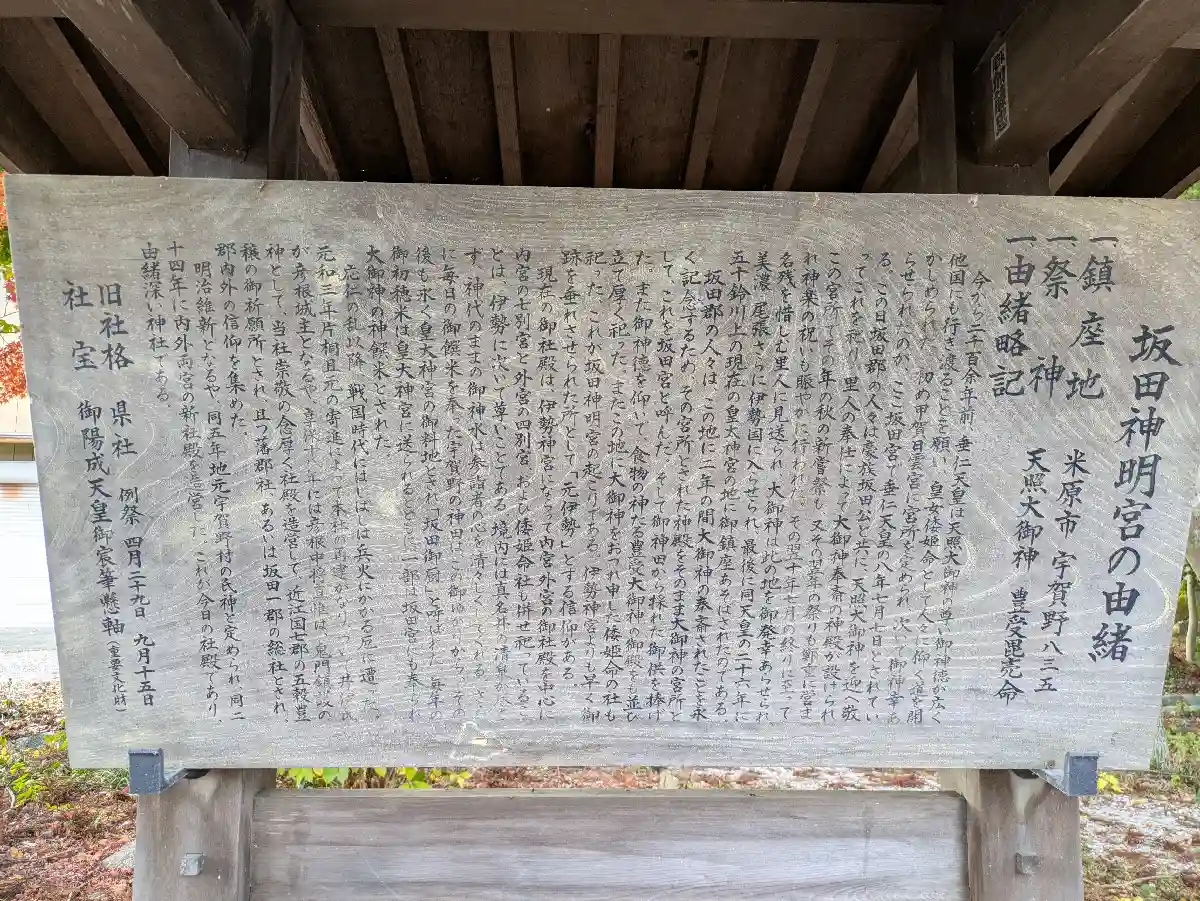 坂田神明宮の由緒
一鎮座地 米原市 宇賀野八三五
一祭神 天照大御神 豊受毘売命
一由緒略記
今から二千百余年前、垂仁天皇は天照大御神の尊い御神徳が広く
他国にも行き渡ることを願い、皇女倭姫命として人々に仰ぐ道を開
かしめられた。初め甲賀日雲宮に宮所を定められ、次いで御神幸あ
らせられたのが、ここ坂田宮で垂仁天皇の八年七月七日とされてい
る。この日坂田郡の人々は豪族坂田公と共に、天照大御神を迎え敬
ってこれを祝り、里人の奉仕によって大御神奉斎の神殿が設けられ
この宮所でその年の秋の新嘗祭も、又その翌年の祭りも鄭重に営ま
れ神楽の祝いも賑やかに行われた。その翌十年七月の終りに至って
名残を惜しむ里人に見送られ、大御神は此の地を御発幸あらせられ、
美濃、尾張さらに伊勢国に入らせられ、最後に同天皇の二十六年に
五十鈴川上の現在の皇太神宮の地に御鎮座あそばされたのである。
坂田郡の人々は、この地に二年の間大御神の奉斎されたことを永
く記念するため、その宮所とされた神殿をそのまま大御神の宮所と
して、これを坂田宮と呼んだ。そして御神田から採れた御供を捧げ
た。また御神徳を仰いで、食物の神たる豊受大御神の御殿をも並び
立て厚く祀った。またこの地に大御神をおつれ申した倭姫命の社も
祀った。これが坂田神明宮の起こりである。伊勢神宮よりも早く御
跡を垂れさせられた所として「元伊勢」とする信仰がある。
現在の御社殿は、伊勢神宮にならって内宮外宮の御社殿を中心に
内宮の七別宮と外宮の四別宮、および倭姫命社も併せ祀っているこ
とは、伊勢に次いで尊いことである。境内には真名井の清泉が
ず、神代のままの御神水は参詣者の心を清々しくしてくれる。さ
に毎日の御饌米を奉った宇賀野の神田はこの御ゆかりから、その
後も永く皇大神宮の御料地とされ「坂田御厨」と呼ばれた。毎年の
御初穂米は皇大神宮に送られるとともに一部は坂田宮にも奉られ
大御神の神饌米とされた。
応仁の乱以降、戦国時代にはしばしば兵火にかかる厄に遭った。
元和三年片桐且元の寄進によって本社の再建がなり、
が彦根城主となるや、
神として、当社崇敬の念厚く社殿を造営して、近江国七郡の五穀豊
穣の御祈願所とされ、且つ藩郡社、あるいは坂田一郡の総社とされ、
郡内外の信仰を集めた。
明治維新となるや、同五年地元宇賀野村の氏神と定められ、同二
十四年に内外両宮の新社殿を造営した。これが今日の社殿であり、
由緒深い神社である。
旧社格 県社 例祭 四月二十九日 九月十五日
社宝 御陽成天皇御宸筆懸軸（重要文化財）